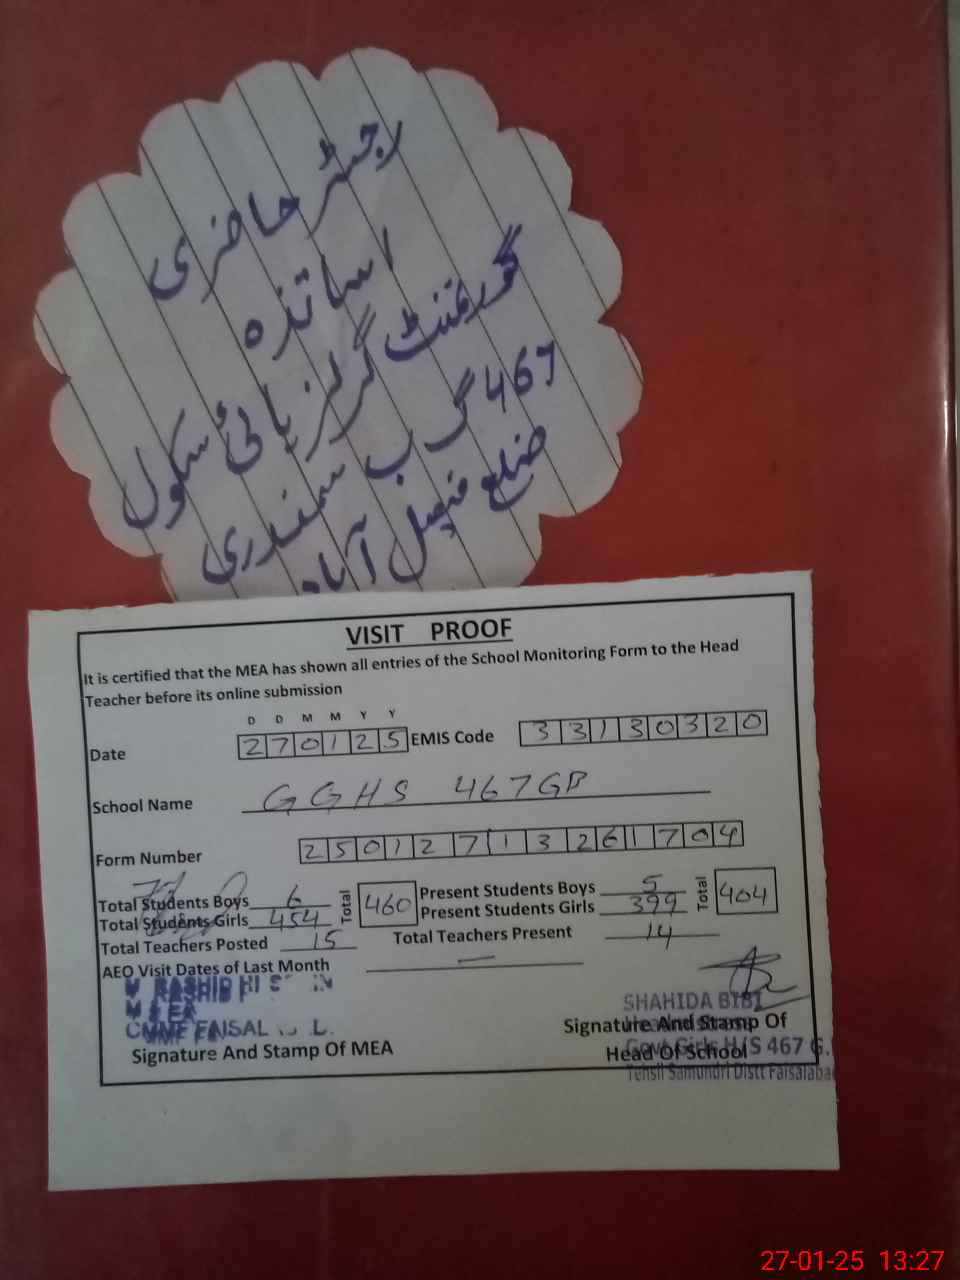 رجسٹر حاضری
اساتذہ
گورنمنٹ گرلز ہائی سکول
467 گ ب سمندری
ضلع فیصل آباد
VISIT PROOF
It is certified that the MEA has shown all entries of the School Monitoring Form to the Head
Teacher before its online submission
D D M M Y Y
Date 270125 EMIS Code 33130320
School Name GGHS 467GB
Form Number 25012713261704
Total Students Boys 6 Total 460 Present Students Boys 5 Total 404
Total Students Girls 454 Present Students Girls 399
Total Teachers Posted 15 Total Teachers Present 14
AEO Visit Dates of Last Month —
M RASHID
M & EA
CMMF FAISAL
Signature And Stamp Of MEA
SHAHIDA BIBI
Signature And Stamp Of
Head Of School
Govt Girls H/S 467 G.
Tehsil Samundri Distt Faisalabad
27-01-25 13:27